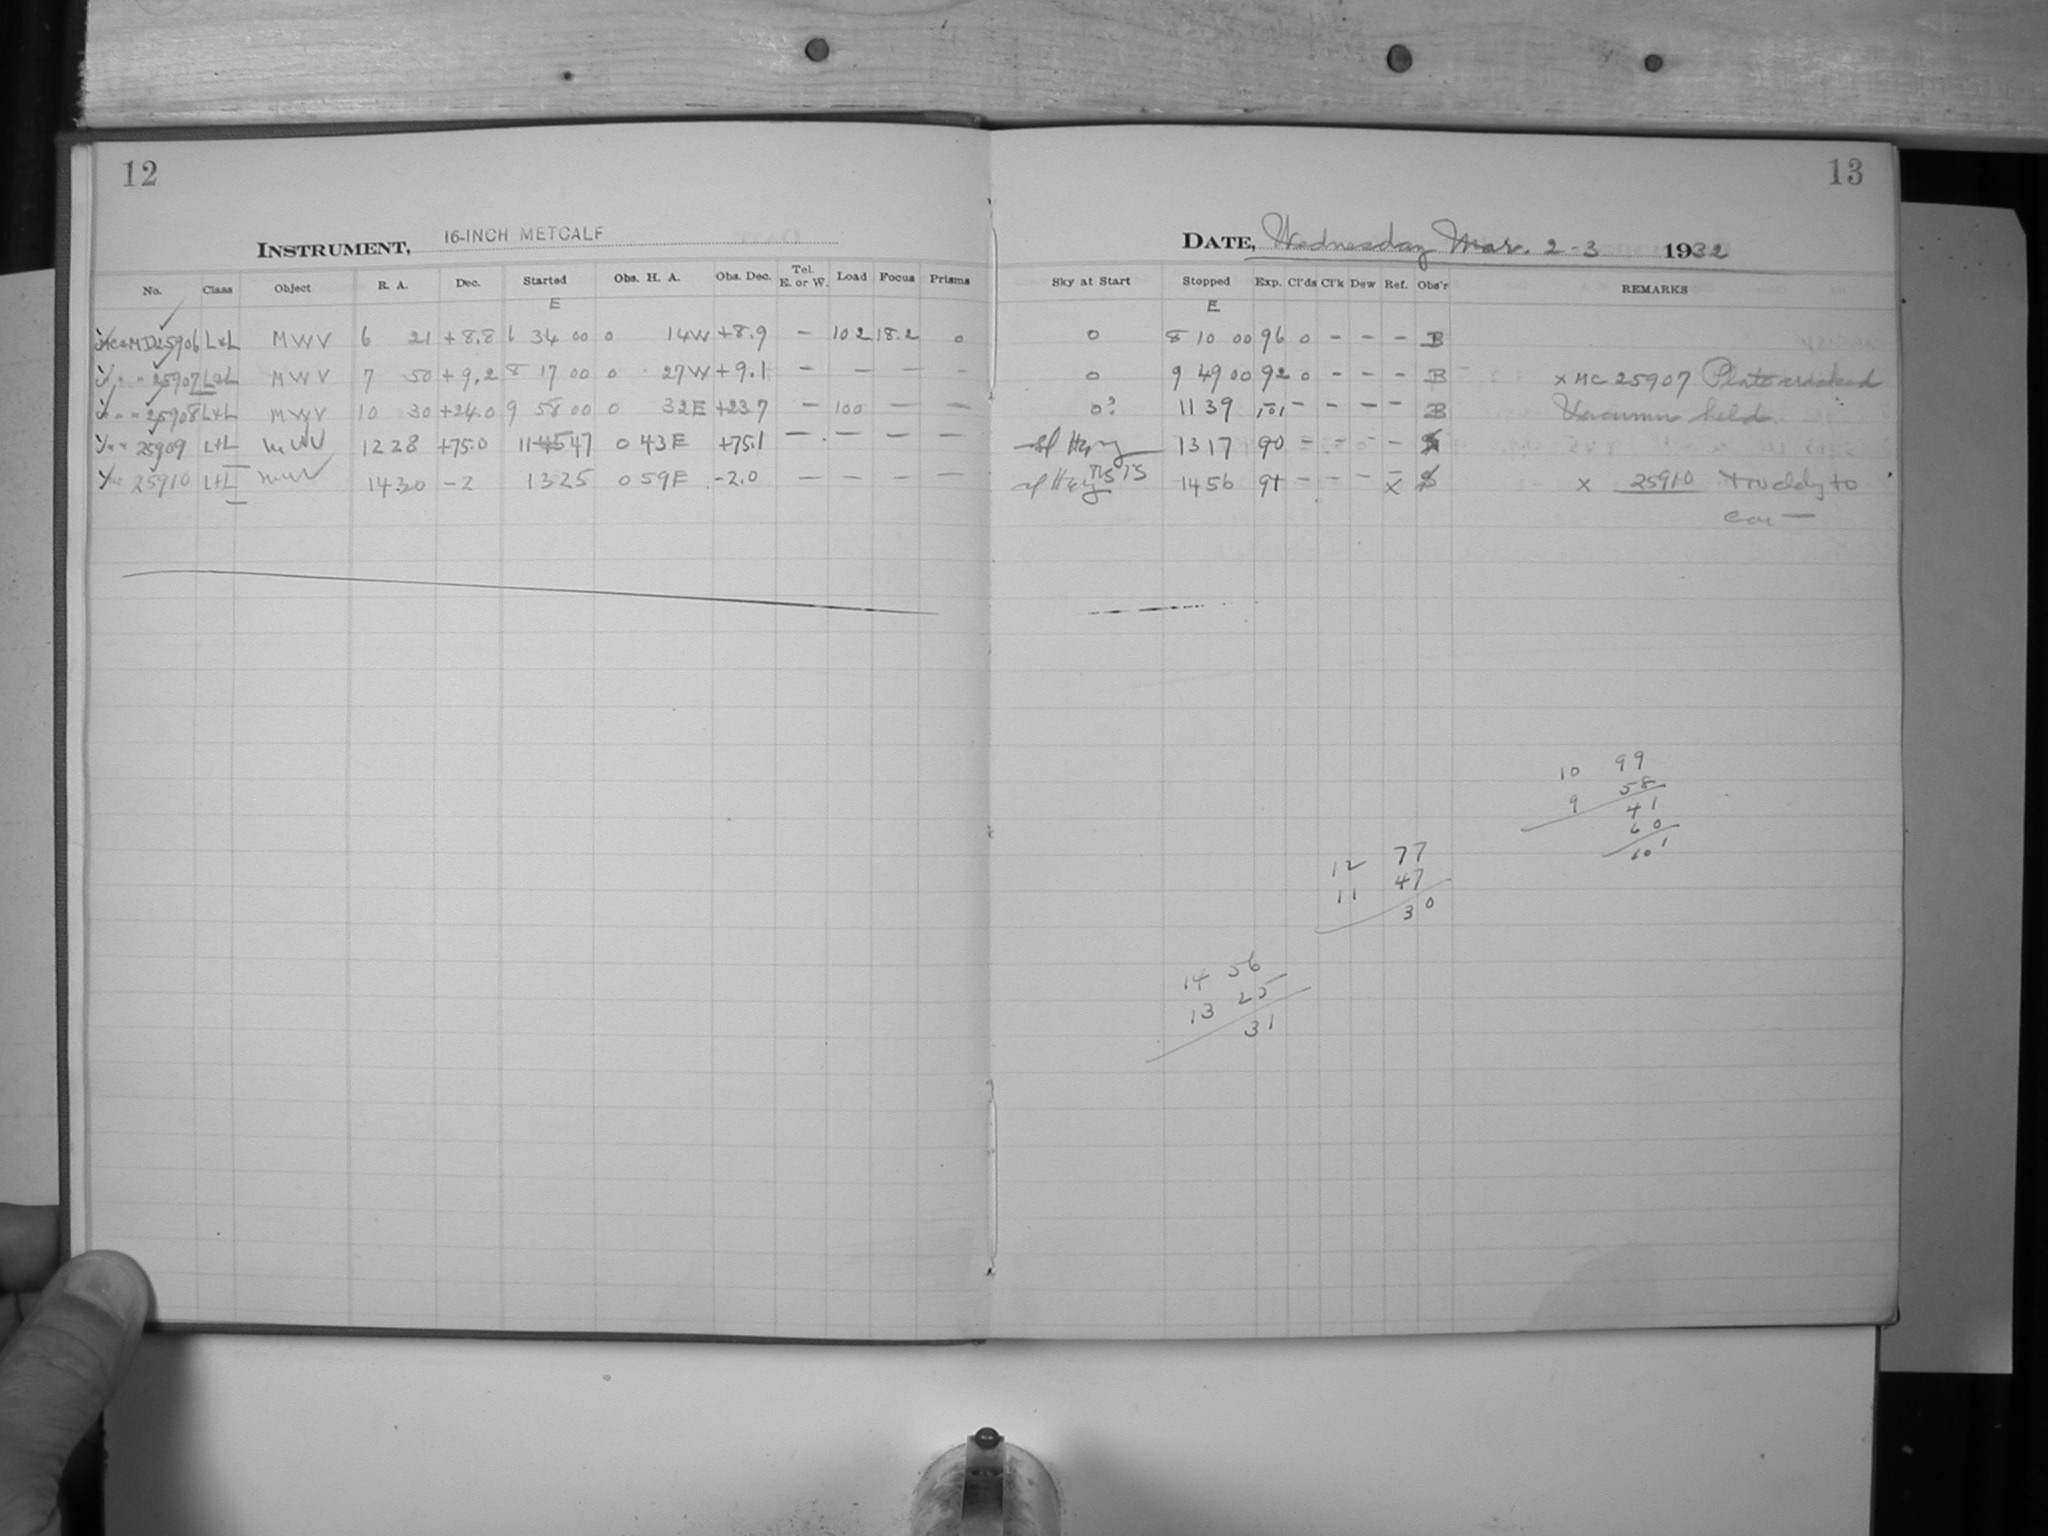 12
13
INSTRUMENT, 16-INCH METCALF
DATE, Wednesday Mar. 2-3 1932
No. Class Object R. A. Dec. Started Obs. H. A. Obs. Dec. Tel. E. or W. Load Focus Prisms Sky at Start Stopped Exp. Cl'ds Cl'k Dew Ref. Obs'r REMARKS
E E
25906 L+L MWV 6 21 +8.8 6 34 00 0 14W +8.9 — 102 18.2 0 0 8 10 00 96 0 - - - B
" " 25907 L+L MWV 7 50 +9.2 8 17 00 0 27W +9.1 — — — - 0 9 49 00 92 0 - - - B x MC 25907 Plate cracked
" " 25908 L+L MWV 10 30 +24.0 9 58 00 0 32E +23.7 — 100 — — 0? 11 39 101 - - - - B Vacuum held
" " 25909 L+L MWV 12 28 +75.0 11 45 47 0 43E +75.1 — — — — 13 17 90 - - - -
" " 25910 L+L MWV 14 30 -2 13 25 0 59E -2.0 — — — — 14 56 91 - - - - x x 25910
10 99
9 58
41
60
101
12 77
11 47
30
14 56
13 25
31